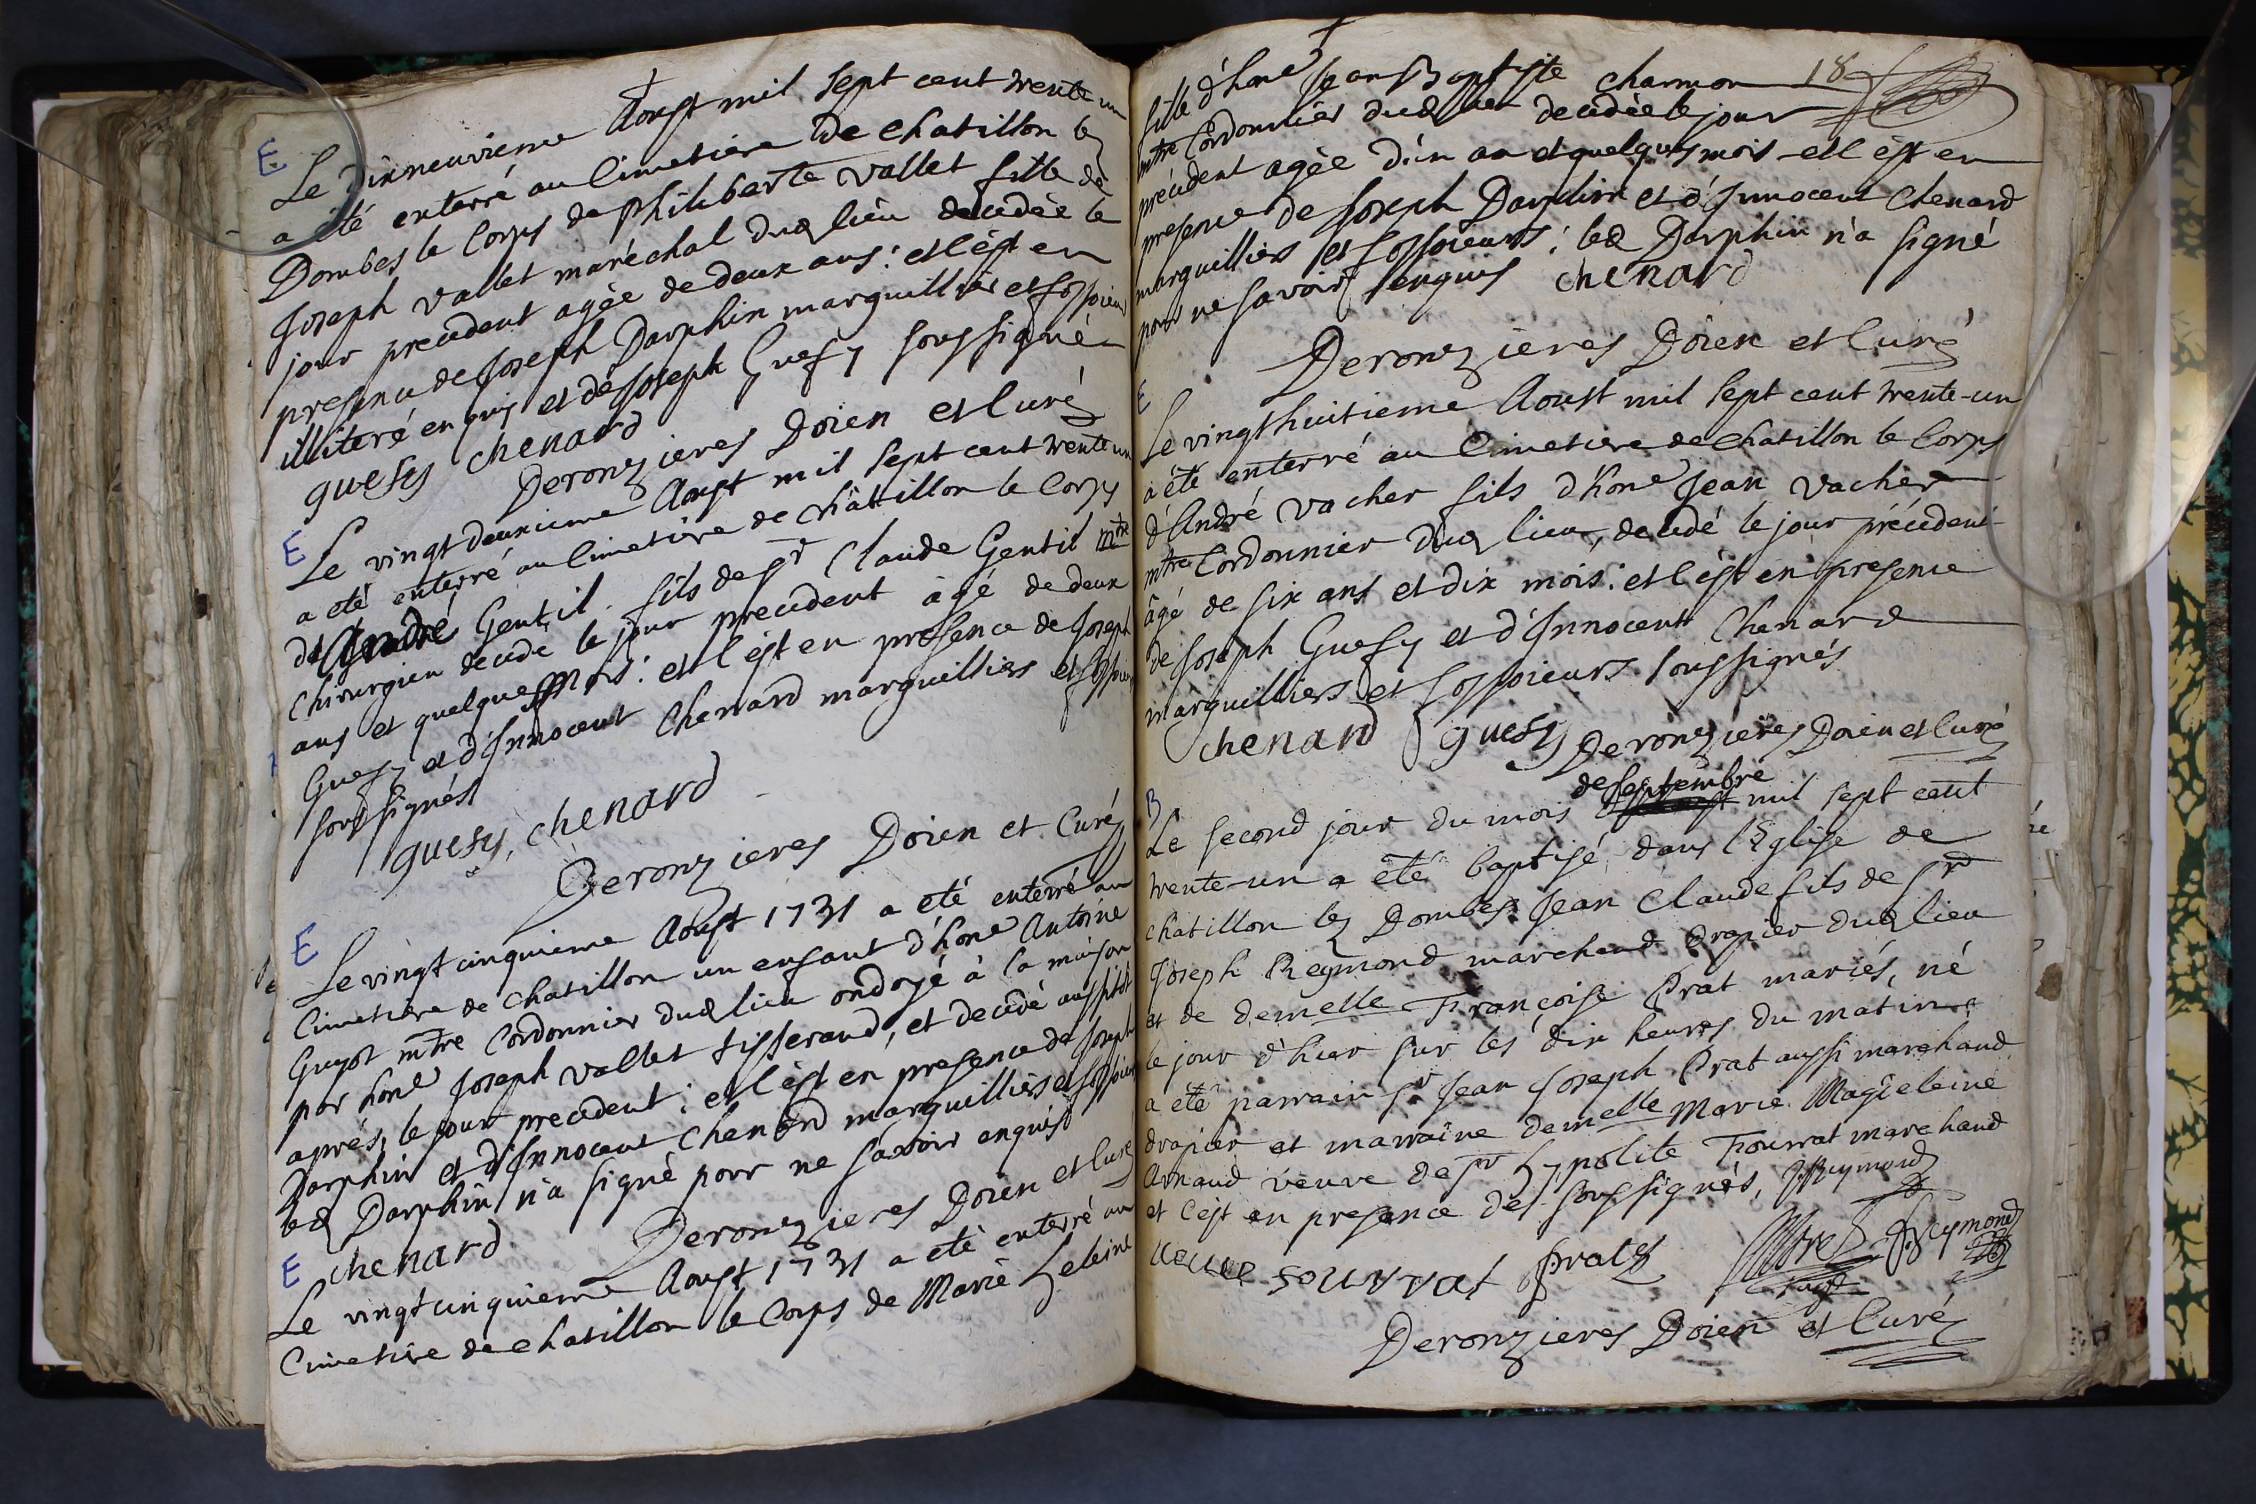 E
Le dixneuvieme Aoust mil sept cent trente un
a été enterré au Cimetiere de Chatillon lez
Dombes le Corps de Philiberte Vallet fille de
Joseph Vallet maréchal dud lieu decedée le
jour precedent agée de deux ans : et c'est en
presence de Joseph Darphin marguillier et fossoieur
illiteré enquis et de Joseph Guesy soussigné
guesy chenard
Deronzieres Doien et Curé
E
Le vingt deuxieme Aoust mil sept cent trente un
a eté enterré au Cimetiere de châtillon le Corps
d'André Gentil fils de sr Claude Gentil mtre
Chirurgien decedé le jour precedent âgé de deux
ans et quelques mois : et c'est en presence de Joseph
Guesy et d'Innocent Chenard marguilliers et fossoieurs
soussignés
guesy, chenard
Deronzieres Doien et Curé
E
Le vingt cinquieme Aoust 1731 a eté enterré au
Cimetiere de Chatillon un enfant d'hone Antoine
Guyot mtre Cordonnier dud lieu ondoyé à la maison
par hone Joseph Vallet tisserand, et decedé aussitôt
aprés, le jour precedent : et c'est en presence de Joseph
Darphin et d'Innocent Chenard marguilliers et fossoieurs
led Darphin n'a signé pour ne savoir enquis
chenard Deronzieres Doien et Curé
E
Le vingt cinquieme Aoust 1731 a eté enterré au
Cimetiere de Chatillon le Corps de Marie Heleine
18
fille d'hone Jean Baptiste Charmon
mtre Cordonnier dud lieu decedée le jour
précedent agée d'un an et quelques mois et c'est en
presence de Joseph Darphin et d'Innocent Chenard
marguilliers et fossoieurs : led Darphin n'a signé
pour ne savoir enquis chenard
Deronzieres Doien et Curé
E
Le vingt huitieme Aoust mil sept cent trente-un
a été enterré au Cimetiere de Chatillon le Corps
d'André Vacher fils d'hone Jean Vacher
mtre Cordonnier dud lieu, decedé le jour précedent
âgé de six ans et dix mois : et c'est en presence
de Joseph Guesy et d'Innocent Chenard
marguilliers et fossoieurs soussignés
chenard guesy Deronzieres Doien et Curé
B
de septembre
Le second jour du mois mil sept cent
trente-un a été baptisé dans l'Eglise de
Chatillon lez Dombes Jean Claude fils de sr
Joseph Reymond marchand drapier dud lieu
et de demelle Françoise Prat mariés, né
le jour d'hier sur les dix heures du matin
a été parrain sr Jean Joseph Prat aussi marchand
drapier et marraine demelle Marie Magdeleine
Arnaud veuve de sr Hypolite Fourrat marchand
et c'est en presence des soussignés, Reymond
veuve fourrat Prat Reymond
Deronzieres Doien et Curé